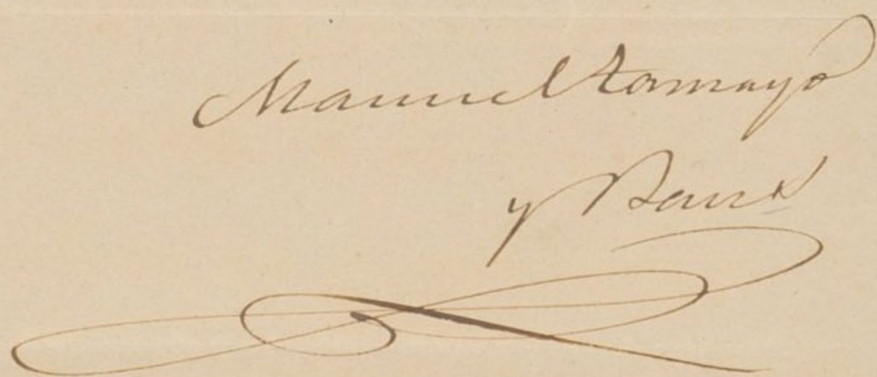 Manuel Tamayo
y Baus